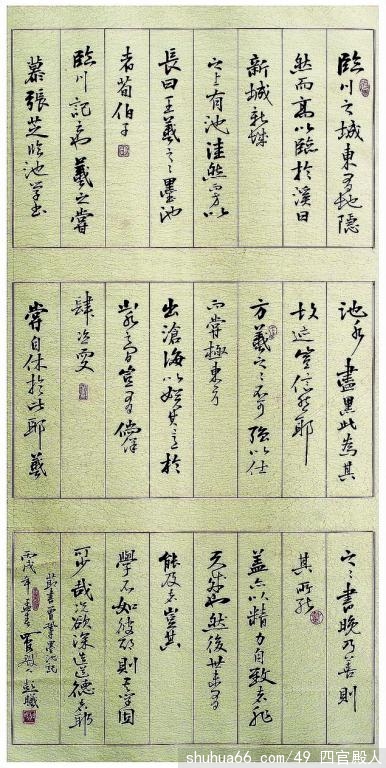 臨川之城東有地隱
然而高以臨於溪曰
新城新城
之上有池洼然而方以
長曰王羲之之墨池
者荀伯子
臨川記云也羲之嘗
慕張芝臨池學書
池水盡黑此為其
故迹豈信然耶
方羲之之不可強以仕
而嘗極東方
出滄海以娛其意於
山水之間豈有徜徉
肆恣又
嘗自休於此耶羲
之之書晚乃善則
其所能
蓋亦以精力自致者非
天成也然後世未有
能及者豈其
學不如彼耶則學固
可少哉況欲深造道德者耶
節書曾鞏墨池記
丙戌年
shuhua66.com/49 四官殿人